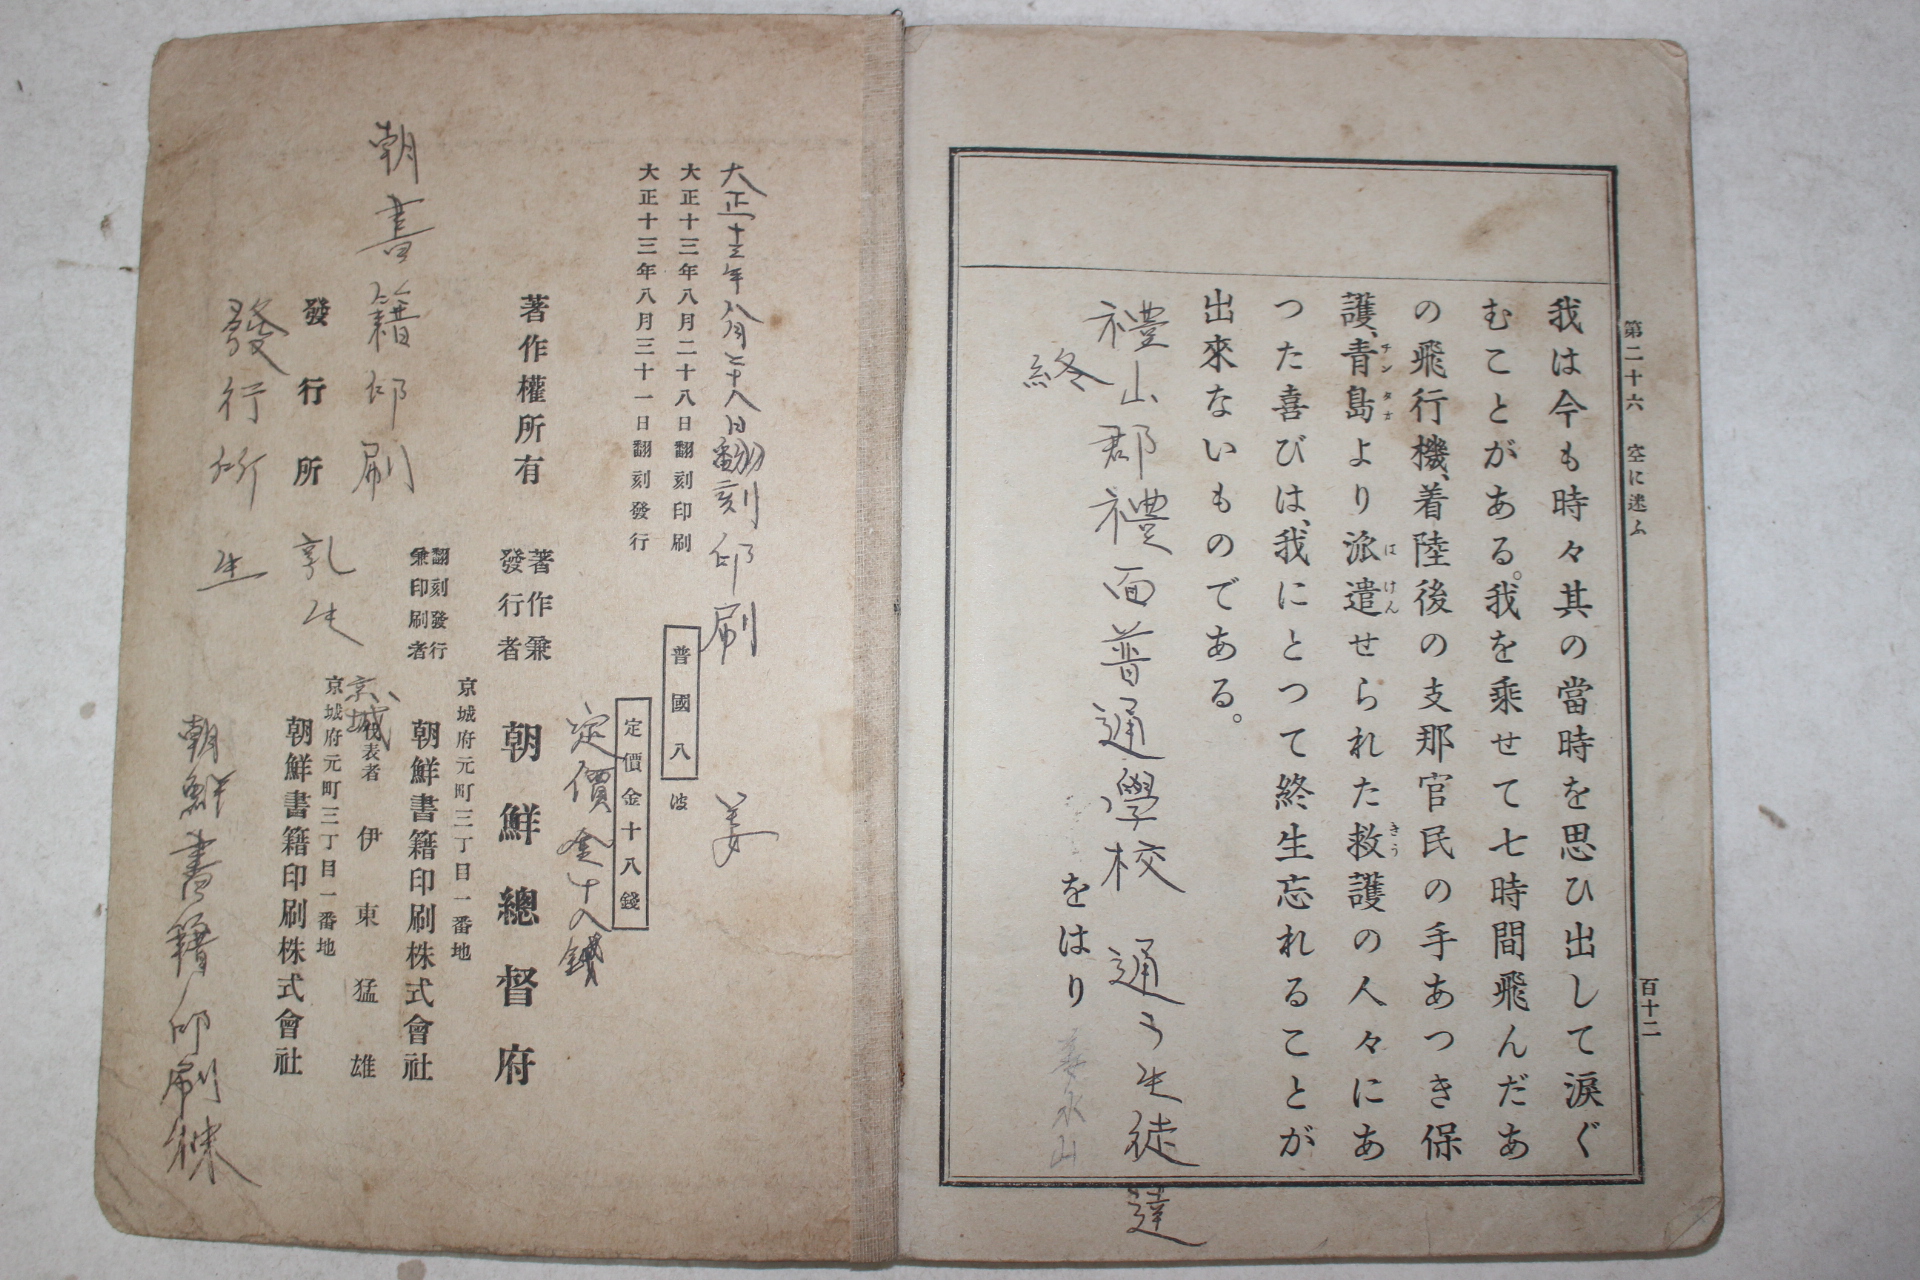 第二十六 空に迷ふ
百十二
我は今も時々其の當時を思ひ出して淚ぐ
むことがある。我を乘せて七時間飛んだあ
の飛行機、着陸後の支那官民の手あつき保
護、靑島より派遣せられた救護の人々にあ
チンタオ
はけん
きう
つた喜びは、我にとつて終生忘れることが
出來ないものである。
禮山郡禮山面普通學校 通う生徒達
終
をはり
大正十三年八月二十八日翻刻印刷
姜
大正十三年八月二十八日翻刻印刷
大正十三年八月三十一日翻刻發行
普國八
波
定價金十八錢
定價金十八錢
著作權所有
著作兼
發行者
朝鮮總督府
京城府元町三丁目一番地
翻刻發行
兼印刷者
朝鮮書籍印刷株式會社
代表者 伊東猛雄
朝書籍印刷
京城
京城府元町三丁目一番地
發行所
朝鮮書籍印刷株式會社
發行所
朝鮮書籍印刷株